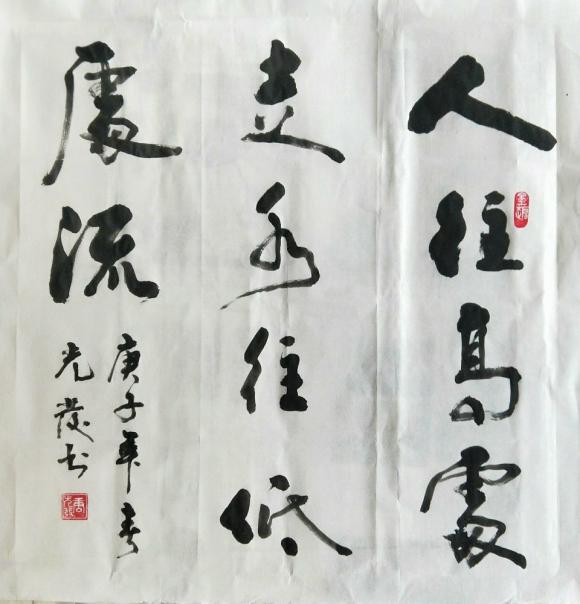 人往高處
走水往低
處流
庚子年春
光發书